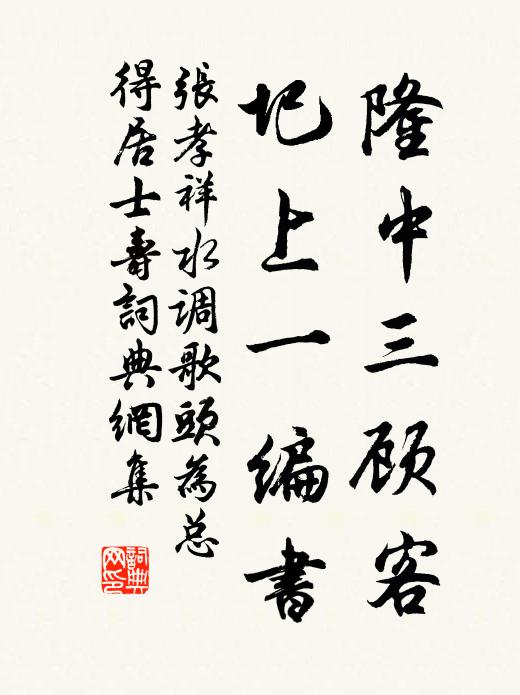 隆中三顾客
圯上一编書
張孝祥水调歌頭為总
得居士壽詞典網集
詞典
网印